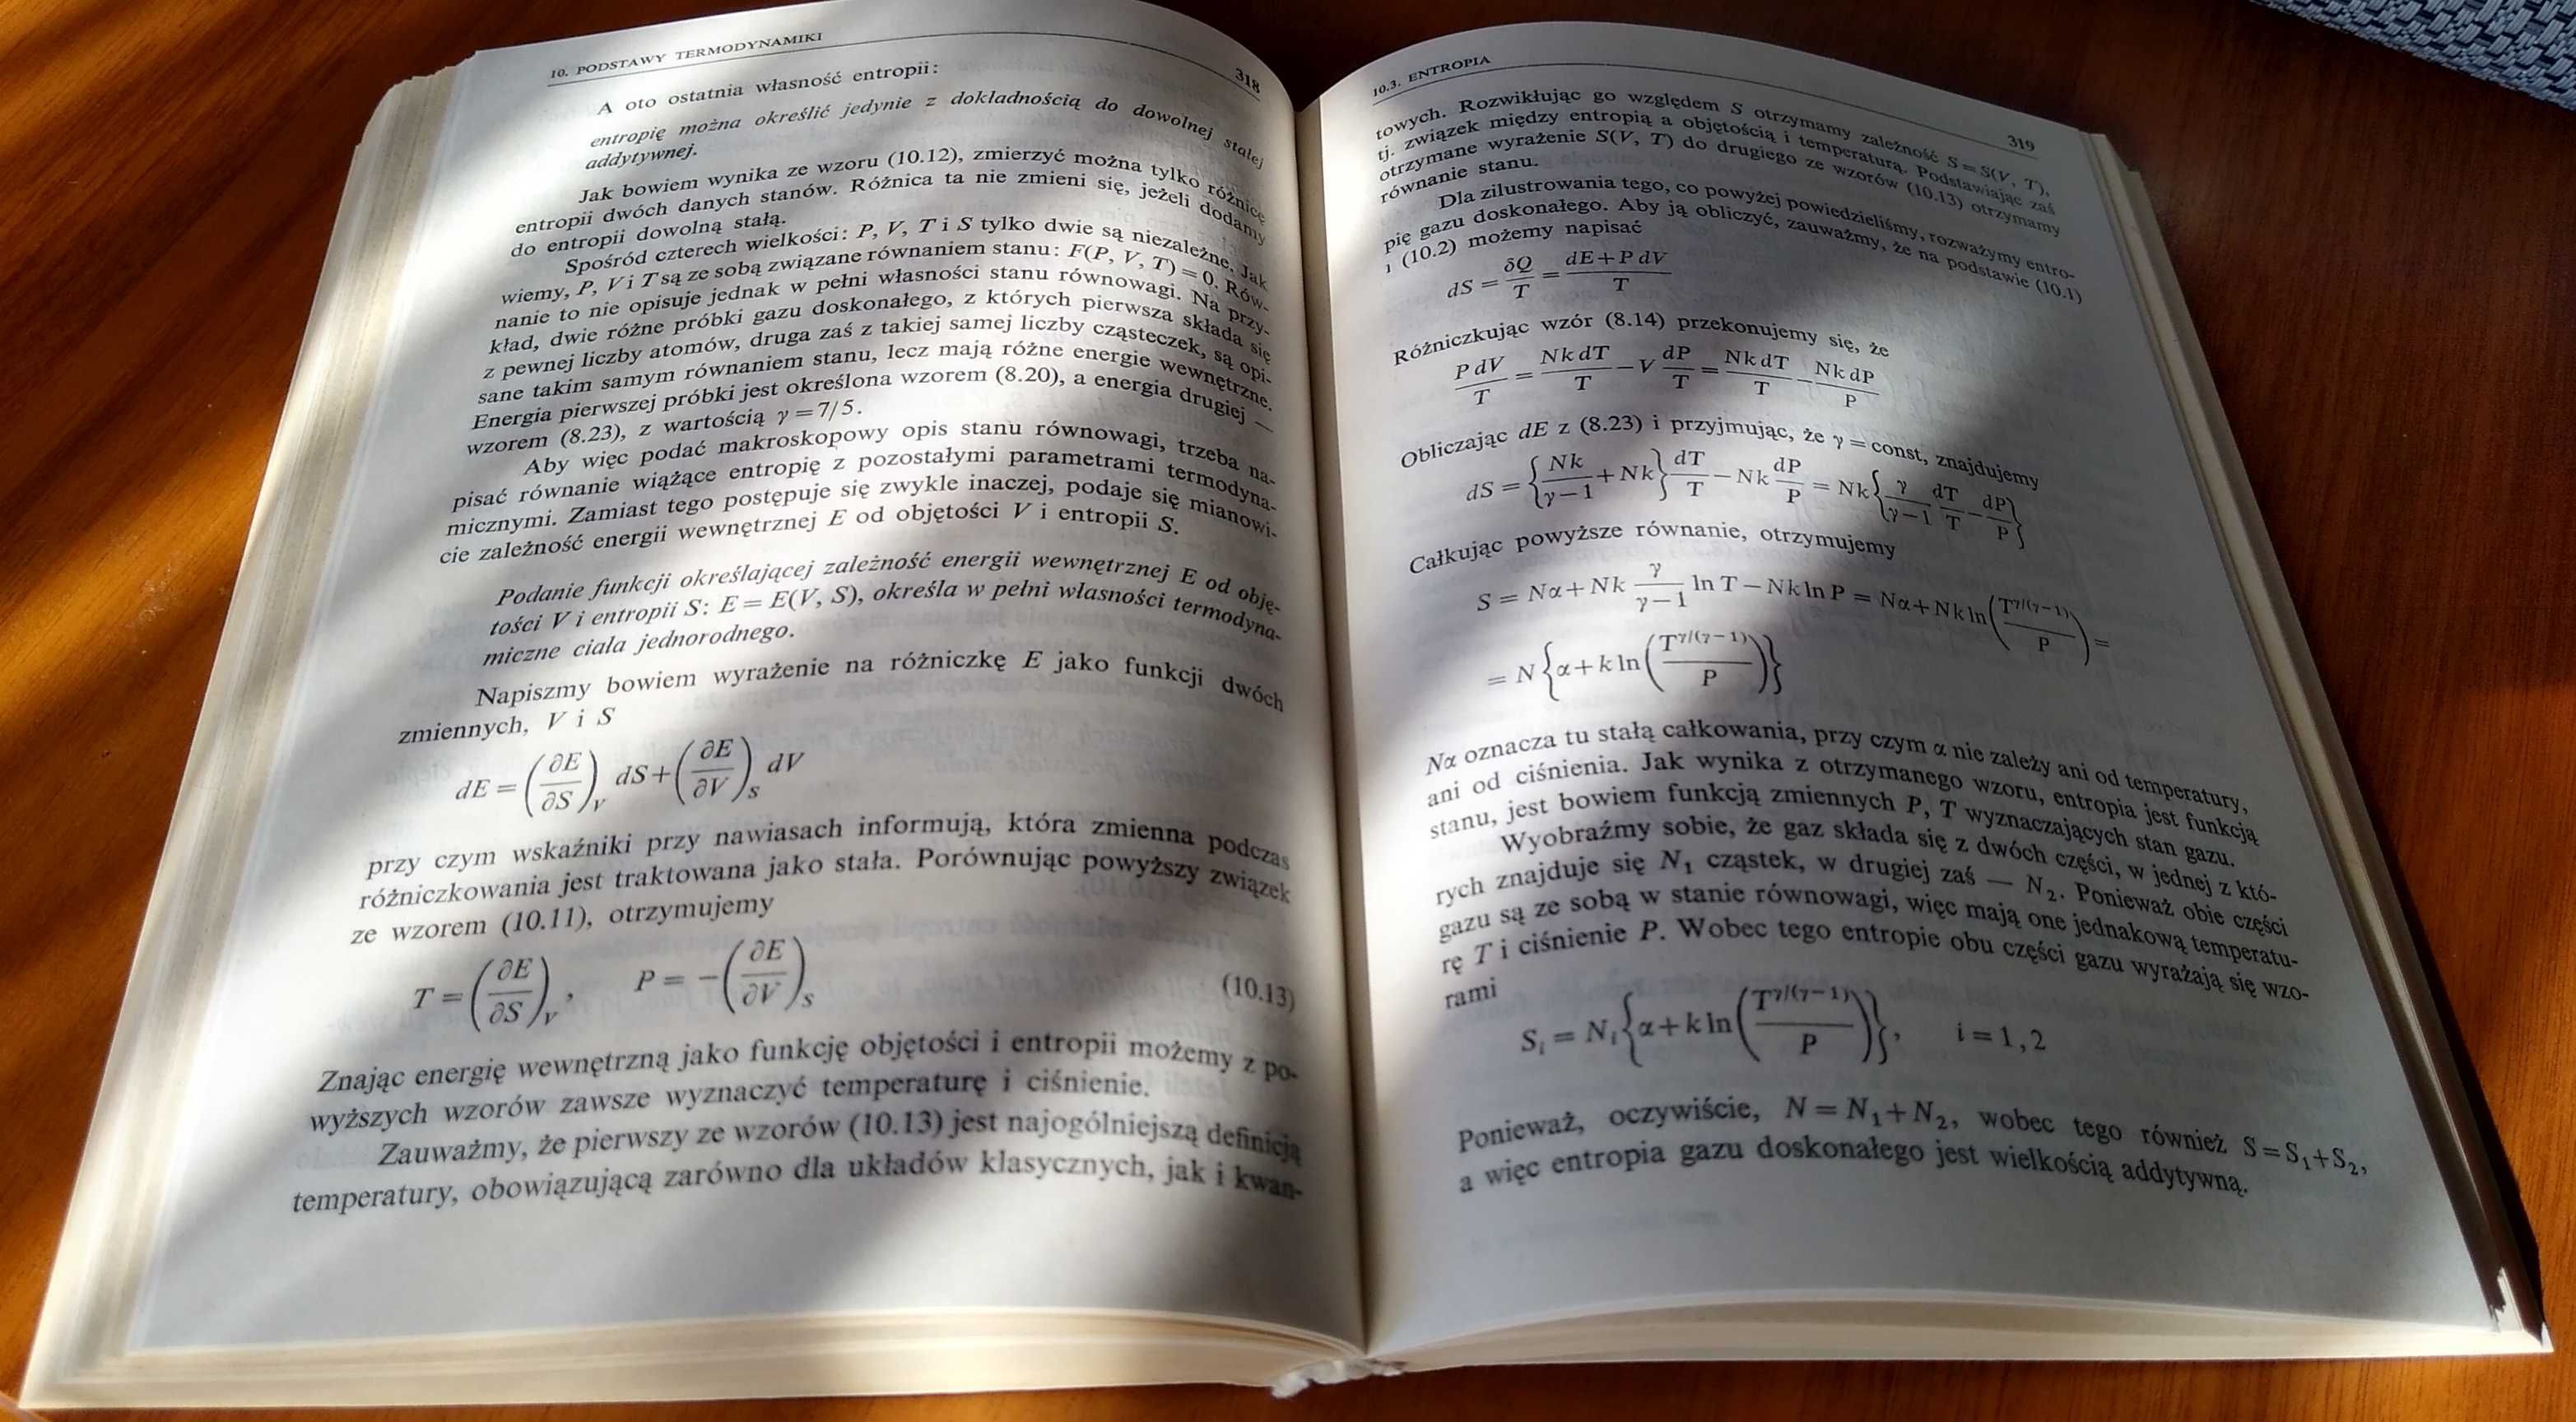 10. PODSTAWY TERMODYNAMIKI 318
A oto ostatnia własność entropii:
entropię można określić jedynie z dokładnością do dowolnej stałej
addytywnej.
Jak bowiem wynika ze wzoru (10.12), zmierzyć można tylko różnicę
entropii dwóch danych stanów. Różnica ta nie zmieni się, jeżeli dodamy
do entropii dowolną stałą.
Spośród czterech wielkości: P, V, T i S tylko dwie są niezależne. Jak
wiemy, P, V i T są ze sobą związane równaniem stanu: F(P, V, T) = 0. Rów-
nanie to nie opisuje jednak w pełni własności stanu równowagi. Na przy-
kład, dwie różne próbki gazu doskonałego, z których pierwsza składa się
z pewnej liczby atomów, druga zaś z takiej samej liczby cząsteczek, są opi-
sane takim samym równaniem stanu, lecz mają różne energie wewnętrzne.
Energia pierwszej próbki jest określona wzorem (8.20), a energia drugiej —
wzorem (8.23), z wartością γ = 7/5.
Aby więc podać makroskopowy opis stanu równowagi, trzeba na-
pisać równanie wiążące entropię z pozostałymi parametrami termodyna-
micznymi. Zamiast tego postępuje się zwykle inaczej, podaje się mianowi-
cie zależność energii wewnętrznej E od objętości V i entropii S.
Podanie funkcji określającej zależność energii wewnętrznej E od obję-
tości V i entropii S: E = E(V, S), określa w pełni własności termodyna-
miczne ciała jednorodnego.
Napiszmy bowiem wyrażenie na różniczkę E jako funkcji dwóch
zmiennych, V i S
dE = (∂E/∂S)_V dS + (∂E/∂V)_S dV
przy czym wskaźniki przy nawiasach informują, która zmienna podczas
różniczkowania jest traktowana jako stała. Porównując powyższy związek
ze wzorem (10.11), otrzymujemy
T = (∂E/∂S)_V, P = −(∂E/∂V)_S (10.13)
Znając energię wewnętrzną jako funkcję objętości i entropii możemy z po-
wyższych wzorów zawsze wyznaczyć temperaturę i ciśnienie.
Zauważmy, że pierwszy ze wzorów (10.13) jest najogólniejszą definicją
temperatury, obowiązującą zarówno dla układów klasycznych, jak i kwan-
10.3. ENTROPIA 319
towych. Rozwikłując go względem S otrzymamy zależność S = S(V, T),
tj. związek między entropią a objętością i temperaturą. Podstawiając zaś
otrzymane wyrażenie S(V, T) do drugiego ze wzorów (10.13) otrzymamy
równanie stanu.
Dla zilustrowania tego, co powyżej powiedzieliśmy, rozważymy entro-
pię gazu doskonałego. Aby ją obliczyć, zauważmy, że na podstawie (10.1)
i (10.2) możemy napisać
dS = δQ/T = (dE + P dV)/T
Różniczkując wzór (8.14) przekonujemy się, że
P dV/T = Nk dT/T − V dP/T = Nk dT/T − Nk dP/P
Obliczając dE z (8.23) i przyjmując, że γ = const, znajdujemy
dS = {Nk/(γ−1) + Nk} dT/T − Nk dP/P = Nk{γ/(γ−1) dT/T − dP/P}
Całkując powyższe równanie, otrzymujemy
S = Nα + Nk γ/(γ−1) ln T − Nk ln P = Nα + Nk ln(T^{γ/(γ−1)}/P) =
= N{α + k ln(T^{γ/(γ−1)}/P)}
Nα oznacza tu stałą całkowania, przy czym α nie zależy ani od temperatury,
ani od ciśnienia. Jak wynika z otrzymanego wzoru, entropia jest funkcją
stanu, jest bowiem funkcją zmiennych P, T wyznaczających stan gazu.
Wyobraźmy sobie, że gaz składa się z dwóch części, w jednej z któ-
rych znajduje się N₁ cząstek, w drugiej zaś — N₂. Ponieważ obie części
gazu są ze sobą w stanie równowagi, więc mają one jednakową temperatu-
rę T i ciśnienie P. Wobec tego entropie obu części gazu wyrażają się wzo-
rami
Sᵢ = Nᵢ{α + k ln(T^{γ/(γ−1)}/P)}, i = 1, 2
Ponieważ, oczywiście, N = N₁ + N₂, wobec tego również S = S₁ + S₂,
a więc entropia gazu doskonałego jest wielkością addytywną.